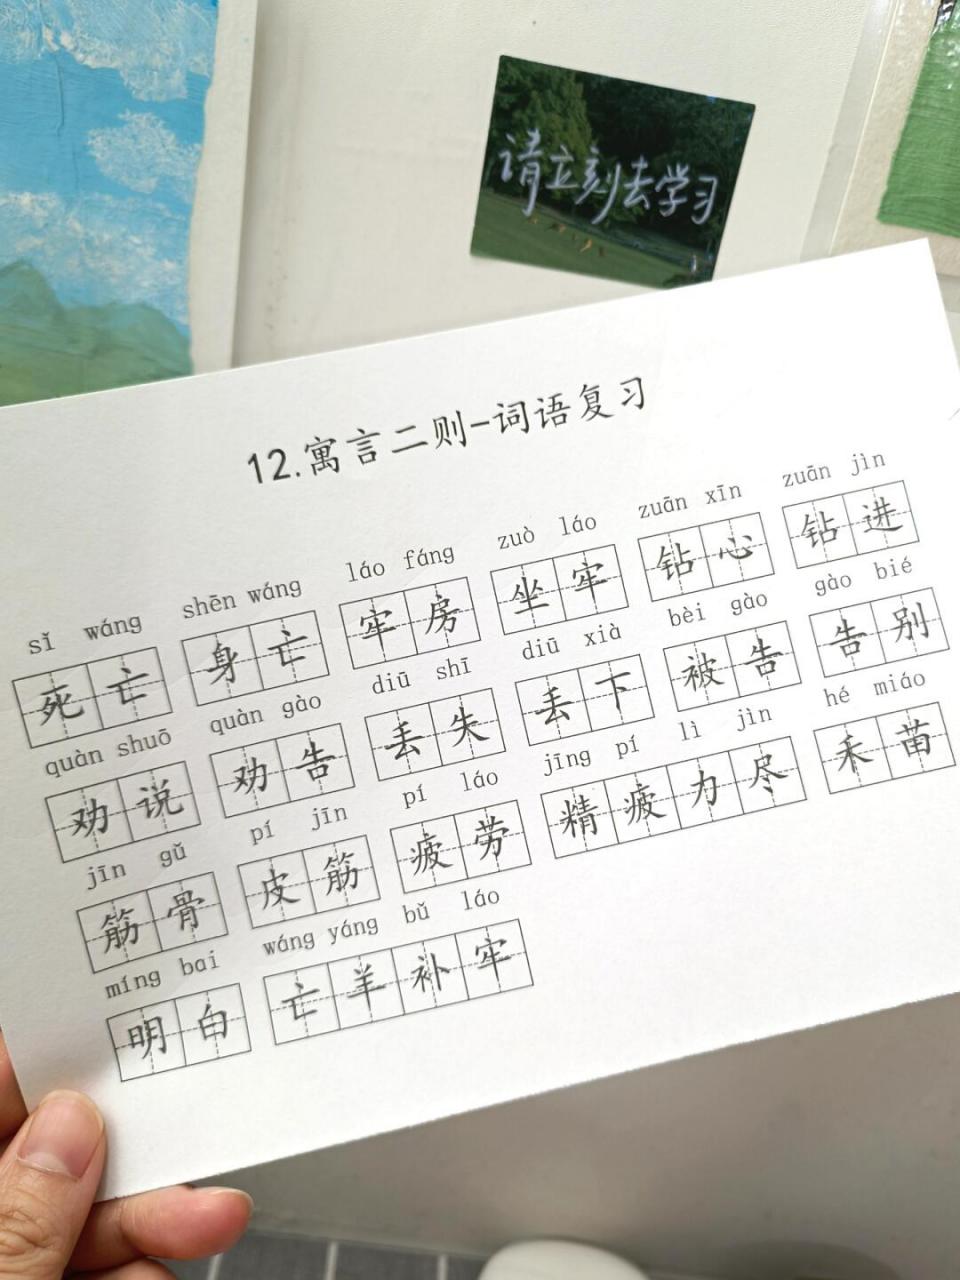 请立刻去学习
12.寓言二则-词语复习
sǐ wáng shēn wáng láo fáng zuò láo zuān xīn zuān jìn
死亡 身亡 牢房 坐牢 钻心 钻进
quàn shuō quàn gào diū shī diū xià bèi gào gào bié
劝说 劝告 丢失 丢下 被告 告别
jīn gǔ pí jīn pí láo jīng pí lì jìn hé miáo
筋骨 皮筋 疲劳 精疲力尽 禾苗
míng bai wáng yáng bǔ láo
明白 亡羊补牢